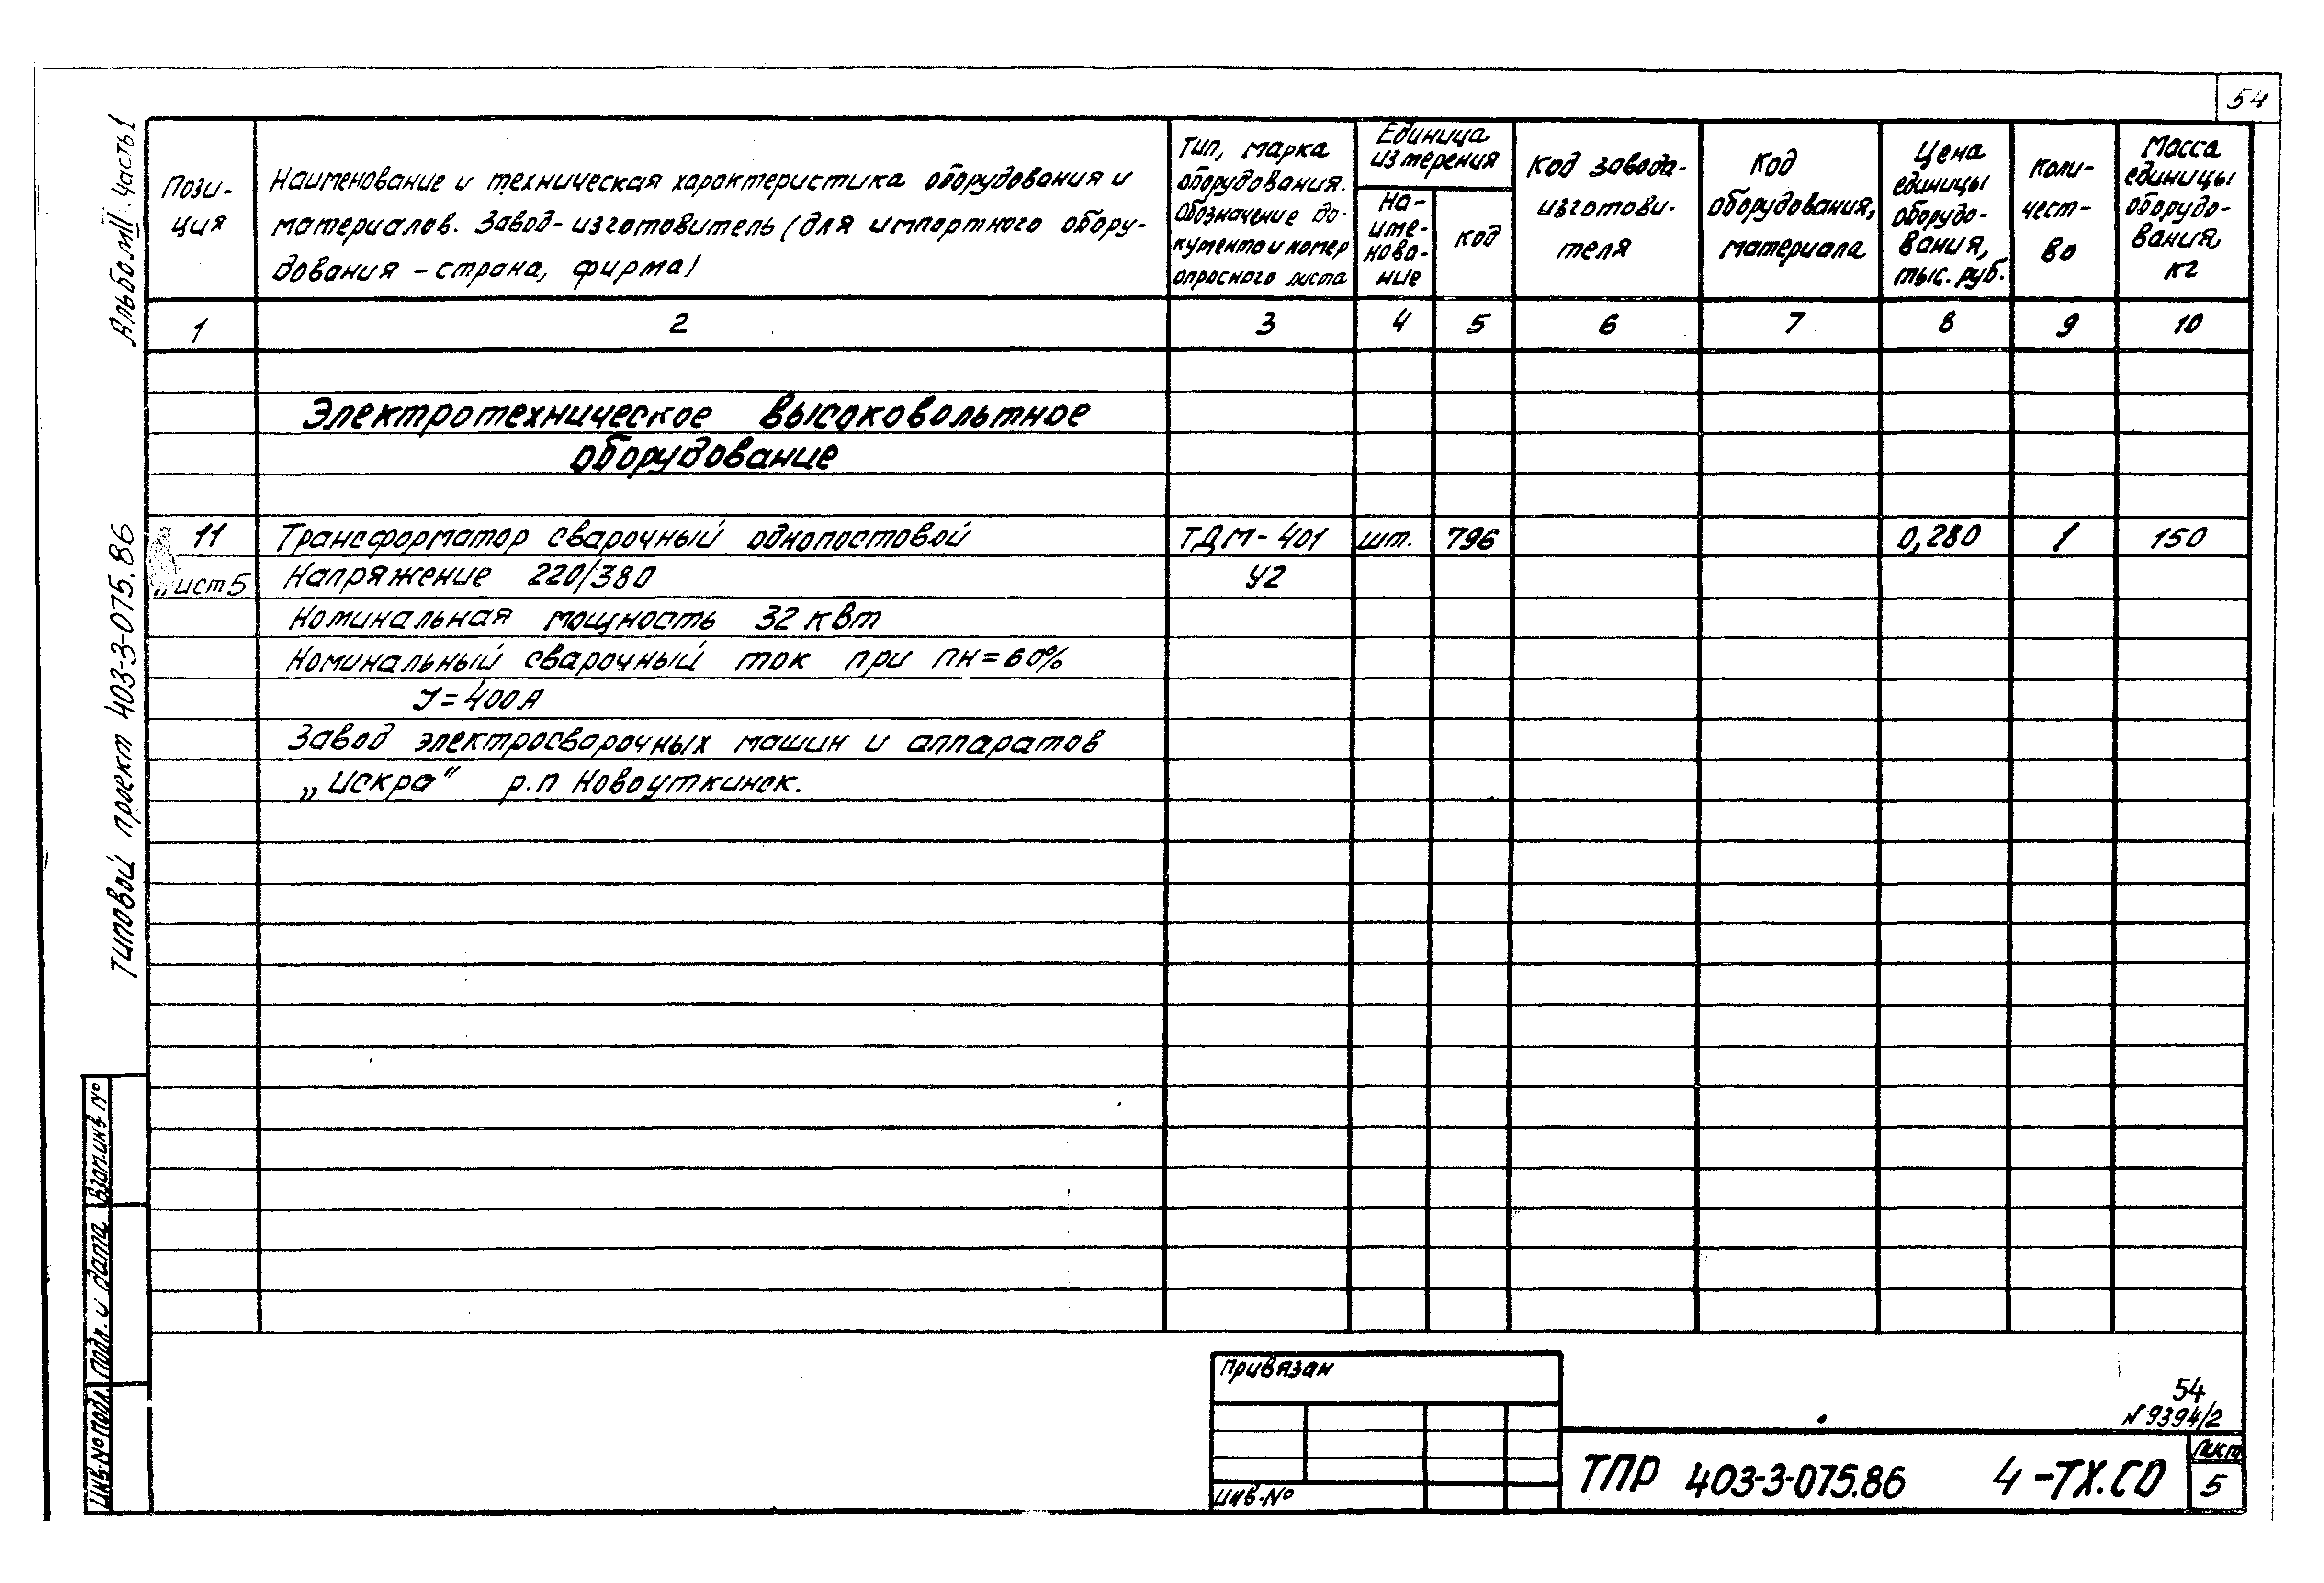 54
Альбом III. Часть 1
Типовой проект 403-3-075.86
Пози-
ция
Наименование и техническая характеристика оборудования и
материалов. Завод-изготовитель (для импортного обору-
дования - страна, фирма)
Тип, марка
оборудования.
Обозначение до-
кумента и номер
опросного листа
Единица
измерения
На-
име-
нова-
ние
код
Код завода-
изготови-
теля
Код
оборудования,
материала
Цена
единицы
оборудо-
вания,
тыс. руб.
Коли-
чест-
во
Масса
единицы
оборудо-
вания,
кг
1 2 3 4 5 6 7 8 9 10
Электротехническое высоковольтное
оборудование
11 Трансформатор сварочный однопостовой ТДМ-401 шт. 796 0,280 1 150
Лист 5 Напряжение 220/380 У2
Номинальная мощность 32 квт
Номинальный сварочный ток при ПН=60%
J=400А
Завод электросварочных машин и аппаратов
„Искра" р.п Новоуткинск.
Взам.инв №
Подл. и дата
Инв.№ подл.
Привязан
Инв.№
54
N 9394/2
ТПР 403-3-075.86 4-ТХ.СО
Лист
5